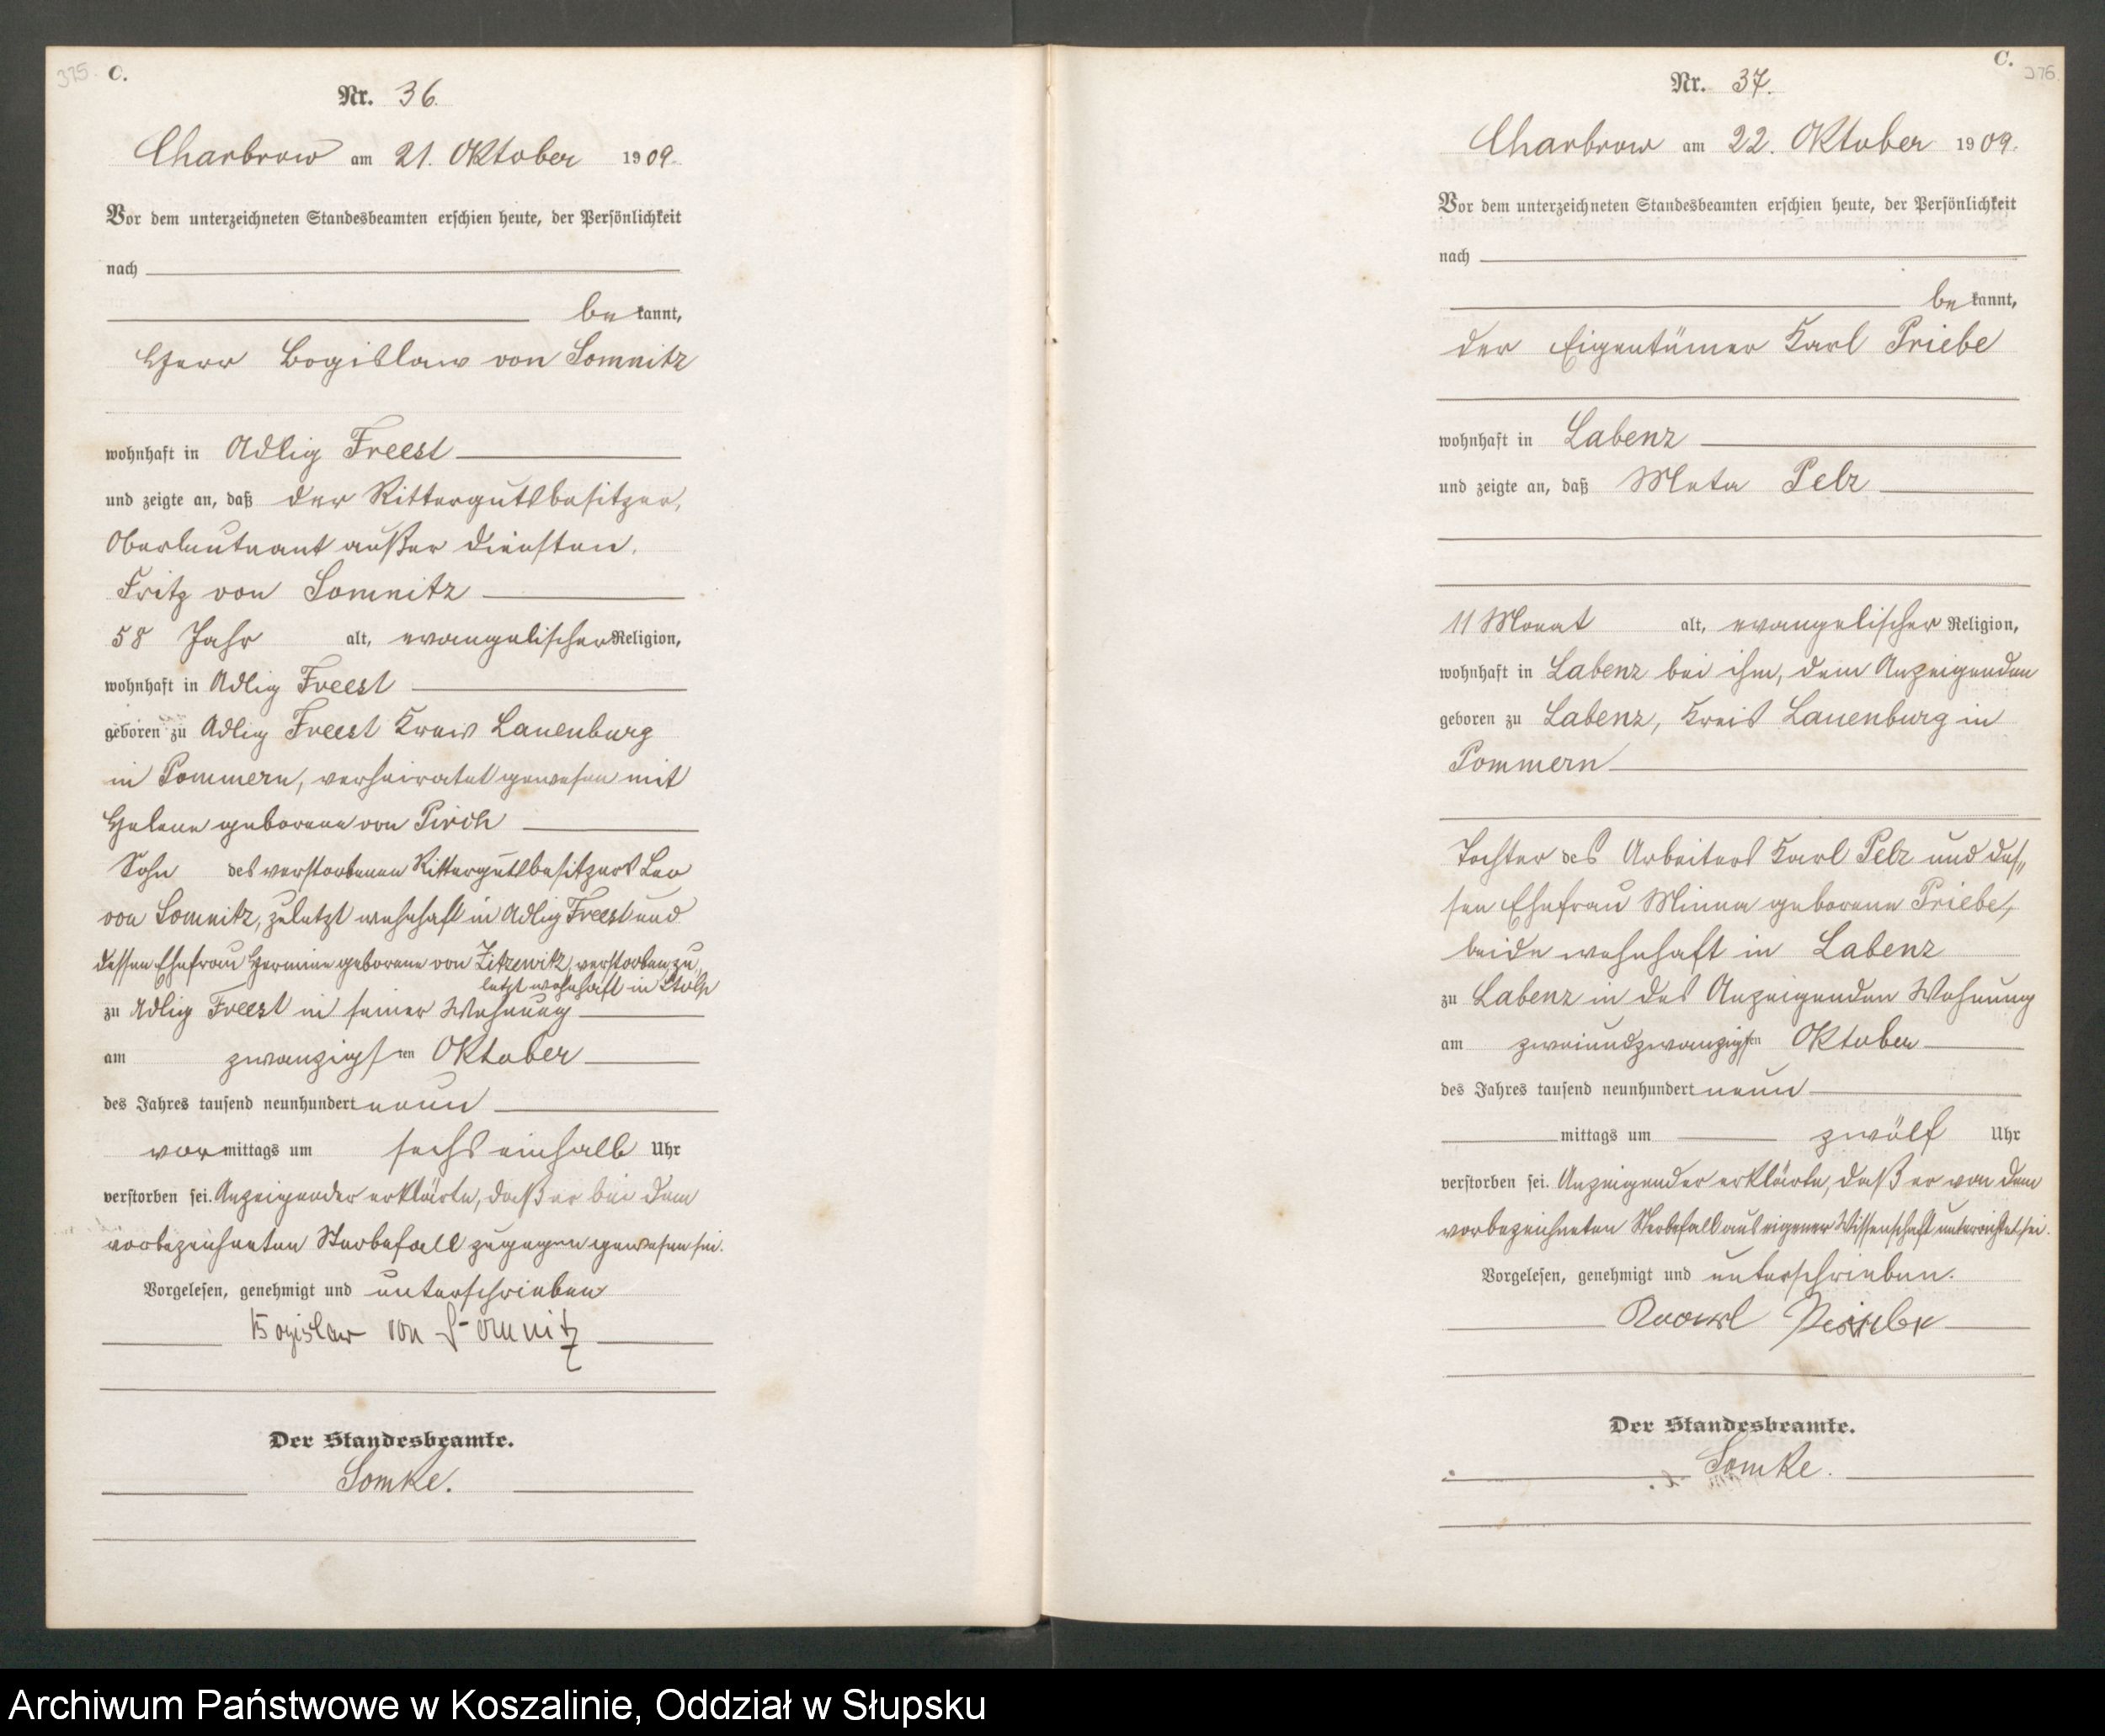 375. C.
Nr. 36.
Charbrow am 21. Oktober 1909.
Vor dem unterzeichneten Standesbeamten erschien heute, der Persönlichkeit
nach
bekannt,
Herr Bogislaw von Somnitz
wohnhaft in Adlig Freest
und zeigte an, daß der Rittergutsbesitzer,
Oberleutnant außer Diensten,
Fritz von Somnitz
58 Jahr alt, evangelischer Religion,
wohnhaft in Adlig Freest
geboren zu Adlig Freest Kreis Lauenburg
in Pommern, verheiratet gewesen mit
Helene geborene von Pirch
Sohn des verstorbenen Rittergutsbesitzers Leo
von Somnitz, zuletzt wohnhaft in Adlig Freest und
dessen Ehefrau Hermine geborene von Zitzewitz, verstorben, zu„
letzt wohnhaft in Stolp
zu Adlig Freest in seiner Wohnung
am zwanzigsten Oktober
des Jahres tausend neunhundert neun
vormittags um sechs einhalb Uhr
verstorben sei. Anzeigender erklärte, daß er bei dem
vorbezeichneten Sterbefall zugegen gewesen sei.
Vorgelesen, genehmigt und unterschrieben
Bogislaw von Somnitz
Der Standesbeamte.
Somke.
C. 376
Nr. 37.
Charbrow am 22. Oktober 1909.
Vor dem unterzeichneten Standesbeamten erschien heute, der Persönlichkeit
nach
bekannt,
der Eigentümer Karl Priebe
wohnhaft in Labenz
und zeigte an, daß Meta Pelz
11 Monat alt, evangelischer Religion,
wohnhaft in Labenz bei ihm, dem Anzeigenden
geboren zu Labenz, Kreis Lauenburg in
Pommern
Tochter des Arbeiters Karl Pelz und des„
sen Ehefrau Minna geborene Priebe,
beide wohnhaft in Labenz
zu Labenz in des Anzeigenden Wohnung
am zweiundzwanzigsten Oktober
des Jahres tausend neunhundert neun
mittags um zwölf Uhr
verstorben sei. Anzeigender erklärte, daß er von dem
vorbezeichneten Sterbefall aus eigener Wissenschaft unterrichtet sei.
Vorgelesen, genehmigt und unterschrieben.
Karl Priebe
Der Standesbeamte.
Somke.
Archiwum Państwowe w Koszalinie, Oddział w Słupsku